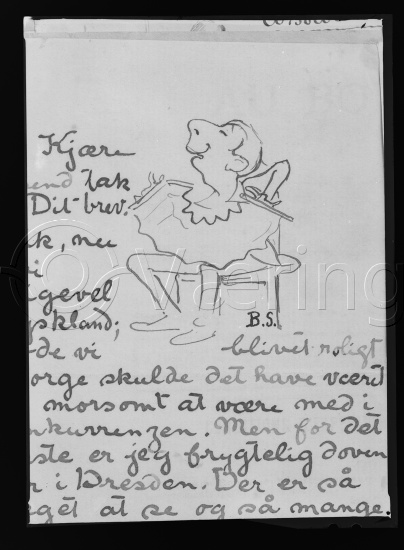 Kjære
end tak
Dit brev.
k, nu
i
igevel
yskland;
B.S.
de vi blivit roligt
orge skulde det have værit
morsomt at være med i
nkurrenzen. Men for det
ste er jeg frygtelig doven
r i Dresden. Der er så
eget at se og så mange.
Væring